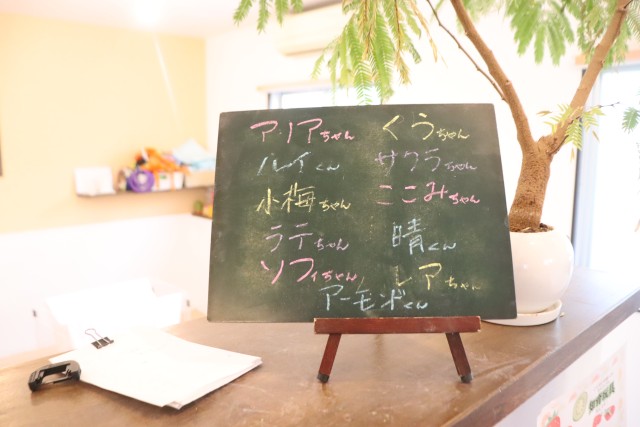 アリアちゃん くうちゃん
ルイくん サクラちゃん
小梅ちゃん ここみちゃん
ラテちゃん 晴くん
ソフィちゃん レアちゃん
アーモンドくん